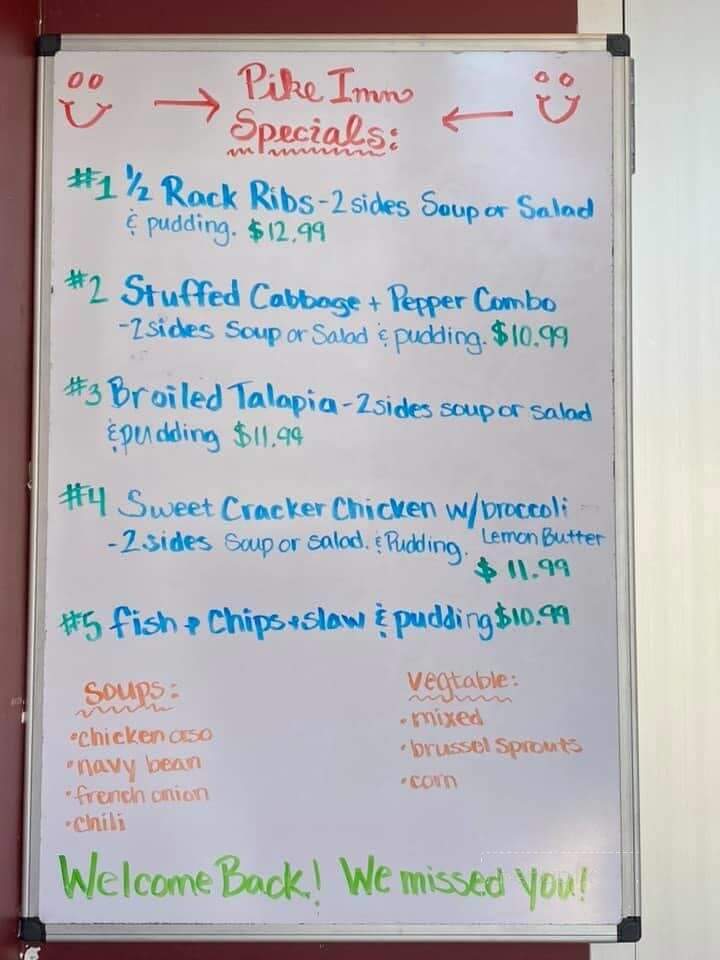 Pike Inn
Specials:
#1 ½ Rack Ribs - 2 sides Soup or Salad
& pudding. $12.99
#2 Stuffed Cabbage + Pepper Combo
- 2 sides Soup or Salad & pudding. $10.99
#3 Broiled Talapia - 2 sides soup or salad
& pudding $11.99
#4 Sweet Cracker Chicken w/broccoli
- 2 sides Soup or salad. & Pudding. Lemon Butter
$11.99
#5 fish + Chips + slaw & pudding $10.99
Soups:
• chicken orso
• navy bean
• french onion
• chili
Vegtable:
• mixed
• brussel sprouts
• corn
Welcome Back! We missed you!